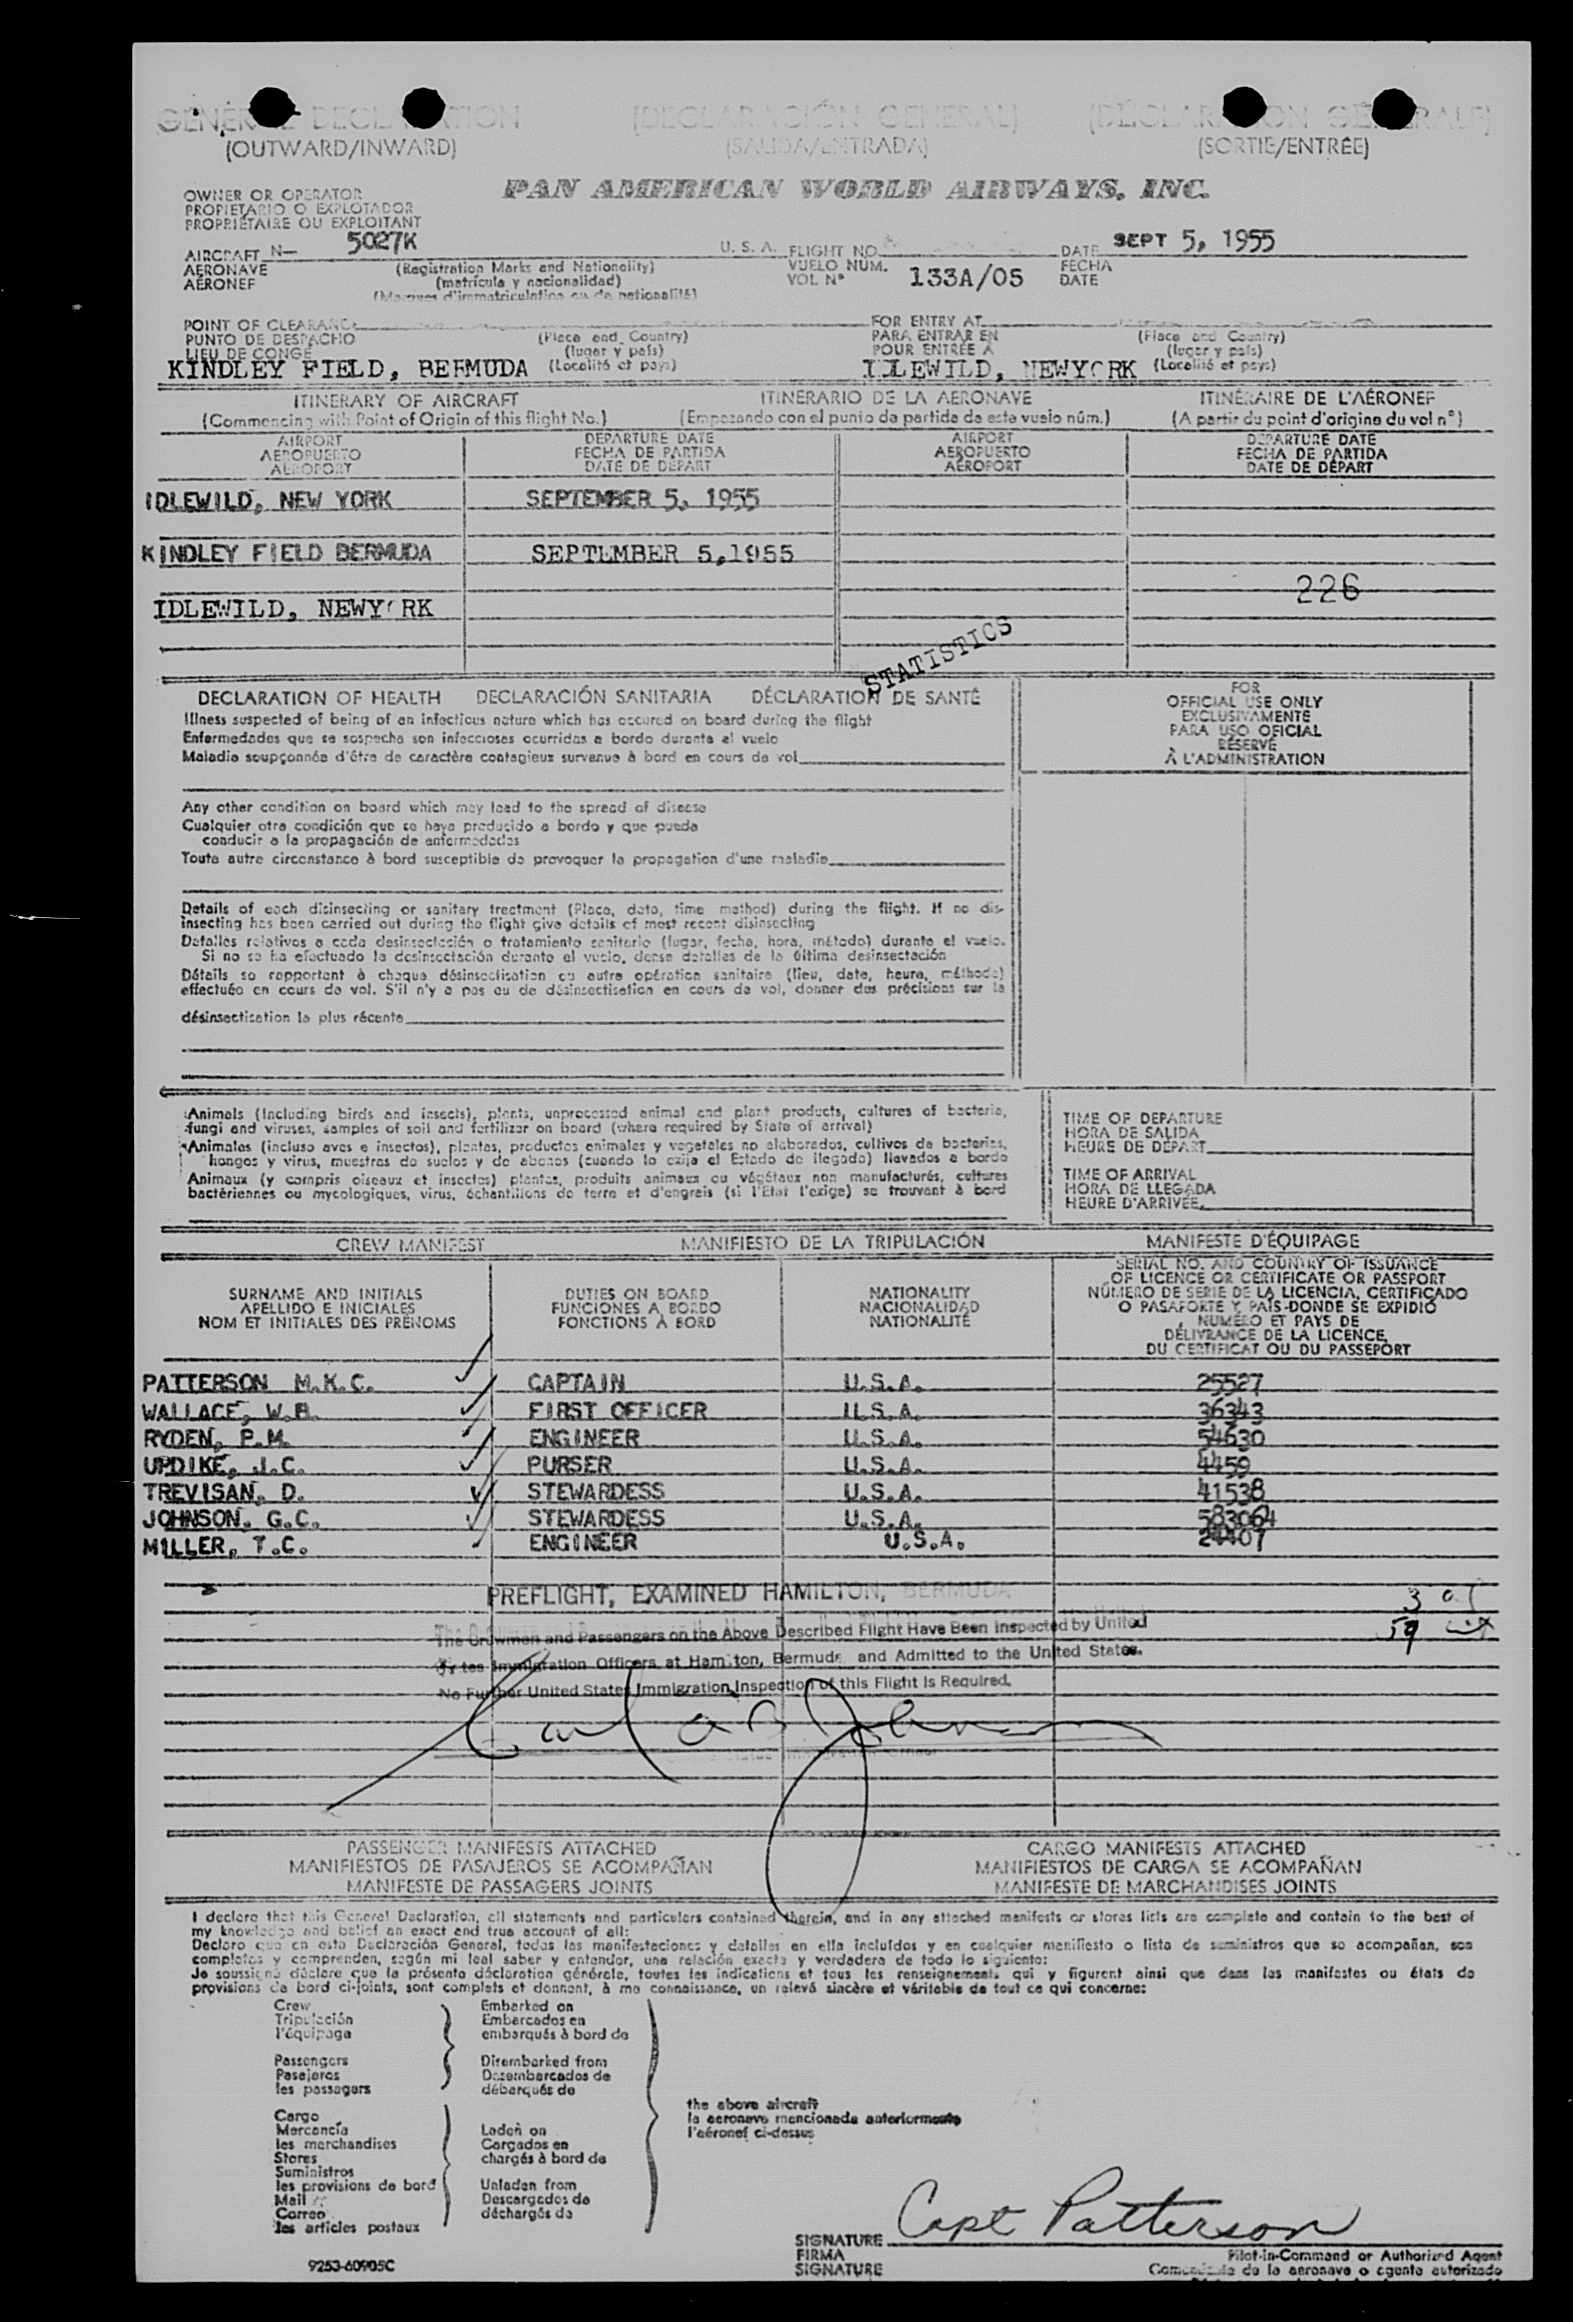 GENERAL DECLARATION (DECLARACIÓN GENERAL) (DÉCLARATION GÉNÉRALE)
(OUTWARD/INWARD) (SALIDA/ENTRADA) (SORTIE/ENTRÉE)
PAN AMERICAN WORLD AIRWAYS, INC.
OWNER OR OPERATOR
PROPIETARIO O EXPLOTADOR
PROPRIÉTAIRE OU EXPLOITANT
AIRCRAFT N— 5027K U. S. A. FLIGHT NO. DATE SEPT 5, 1955
AERONAVE (Registration Marks and Nationality) VUELO NUM. 133A/05 FECHA
AÉRONEF (matrícula y nacionalidad) VOL Nº DATE
(Marques d'immatriculation ou de nationalité)
POINT OF CLEARANCE FOR ENTRY AT
PUNTO DE DESPACHO (Place and Country) PARA ENTRAR EN (Place and Country)
LIEU DE CONGÉ (lugar y país) POUR ENTRÉE A (lugar y país)
KINDLEY FIELD, BERMUDA (Localité et pays) IDLEWILD, NEWYORK (Localité et pays)
ITINERARY OF AIRCRAFT ITINERARIO DE LA AERONAVE ITINÉRAIRE DE L'AÉRONEF
(Commencing with Point of Origin of this flight No.) (Empezando con el punto de partida de este vuelo núm.) (A partir du point d'origine du vol nº)
AIRPORT DEPARTURE DATE AIRPORT DEPARTURE DATE
AEROPUERTO FECHA DE PARTIDA AEROPUERTO FECHA DE PARTIDA
AÉROPORT DATE DE DÉPART AÉROPORT DATE DE DÉPART
IDLEWILD, NEW YORK SEPTEMBER 5, 1955
KINDLEY FIELD BERMUDA SEPTEMBER 5,1955
226
IDLEWILD, NEWYORK
STATISTICS
DECLARATION OF HEALTH DECLARACIÓN SANITARIA DÉCLARATION DE SANTÉ
Illness suspected of being of an infectious nature which has occured on board during the flight
Enfermedades que se sospecha son infecciosas ocurridas a bordo durante el vuelo
Maladie soupçonnée d'être de caractère contagieux survenue à bord en cours de vol
FOR
OFFICIAL USE ONLY
EXCLUSIVAMENTE
PARA USO OFICIAL
RÉSERVÉ
À L'ADMINISTRATION
Any other condition on board which may lead to the spread of disease
Cualquier otra condición que se haya producido a bordo y que pueda
conducir a la propagación de enfermedades
Toute autre circonstance à bord susceptible de provoquer la propagation d'une maladie
Details of each disinsecting or sanitary treatment (Place, date, time method) during the flight. If no dis-
insecting has been carried out during the flight give details of most recent disinsecting
Detalles relativos a cada desinsectación o tratamiento sanitario (lugar, fecha, hora, método) durante el vuelo.
Si no se ha efectuado la desinsectación durante el vuelo, dense detalles de la última desinsectación
Détails se rapportant à chaque désinsectisation ou autre opération sanitaire (lieu, date, heure, méthode)
effectuée en cours de vol. S'il n'y a pas eu de désinsectisation en cours de vol, donner des précisions sur la
désinsectisation la plus récente
Animals (including birds and insects), plants, unprocessed animal and plant products, cultures of bacteria,
fungi and viruses, samples of soil and fertilizer on board (where required by State of arrival)
Animales (incluso aves e insectos), plantas, productos animales y vegetales no elaborados, cultivos de bacterias,
hongos y virus, muestras de suelos y de abonos (cuando lo exija el Estado de llegada) llevados a bordo
Animaux (y compris oiseaux et insectes) plantes, produits animaux ou végétaux non manufacturés, cultures
bactériennes ou mycologiques, virus, échantillons de terre et d'engrais (si l'État l'exige) se trouvant à bord
TIME OF DEPARTURE
HORA DE SALIDA
HEURE DE DÉPART
TIME OF ARRIVAL
HORA DE LLEGADA
HEURE D'ARRIVÉE
CREW MANIFEST MANIFIESTO DE LA TRIPULACIÓN MANIFESTE D'ÉQUIPAGE
SURNAME AND INITIALS
APELLIDO E INICIALES
NOM ET INITIALES DES PRÉNOMS
DUTIES ON BOARD
FUNCIONES A BORDO
FONCTIONS À BORD
NATIONALITY
NACIONALIDAD
NATIONALITÉ
SERIAL NO. AND COUNTRY OF ISSUANCE
OF LICENCE OR CERTIFICATE OR PASSPORT
NÚMERO DE SERIE DE LA LICENCIA, CERTIFICADO
O PASAPORTE Y PAÍS-DONDE SE EXPIDIÓ
NUMÉRO ET PAYS DE
DÉLIVRANCE DE LA LICENCE,
DU CERTIFICAT OU DU PASSEPORT
PATTERSON M.K.C. CAPTAIN U.S.A. 25527
WALLACE, W.B. FIRST OFFICER U.S.A. 36343
RYDEN, P.M. ENGINEER U.S.A. 54630
UPDIKE, J.C. PURSER U.S.A. 4459
TREVISAN, D. STEWARDESS U.S.A. 41538
JOHNSON, G.C. STEWARDESS U.S.A. 583064
MILLER, T.C. ENGINEER U.S.A.
PREFLIGHT, EXAMINED HAMILTON, BERMUDA
The Crewmen and Passengers on the Above Described Flight Have Been Inspected by United
States Immigration Officers at Hamilton, Bermuda and Admitted to the United States.
No Further United States Immigration Inspection of this Flight Is Required.
PASSENGER MANIFESTS ATTACHED CARGO MANIFESTS ATTACHED
MANIFIESTOS DE PASAJEROS SE ACOMPAÑAN MANIFIESTOS DE CARGA SE ACOMPAÑAN
MANIFESTE DE PASSAGERS JOINTS MANIFESTE DE MARCHANDISES JOINTS
I declare that this General Declaration, all statements and particulars contained therein, and in any attached manifests or stores lists are complete and contain to the best of
my knowledge and belief an exact and true account of all:
Declaro que en esta Declaración General, todas las manifestaciones y detalles en ella incluídos y en cualquier manifiesto o lista de suministros que se acompañan, son
completos y comprenden, según mi leal saber y entender, una relación exacta y verdadera de todo lo siguiente:
Je soussigné déclare que la présente déclaration générale, toutes les indications et tous les renseignements qui y figurent ainsi que dans les manifestes ou états de
provisions de bord ci-joints, sont complets et donnent, à ma connaissance, un relevé sincère et véritable de tout ce qui concerne:
Crew Embarked on
Tripulación Embarcados en
l'équipage embarqués à bord de
Passengers Disembarked from
Pasajeros Desembarcados de
les passagers débarqués de
the above aircraft
la aeronave mencionada anteriormente
l'aéronef ci-dessus
Cargo
Mercancía Laden on
les marchandises Cargados en
Stores chargés à bord de
Suministros
les provisions de bord Unladen from
Mail Descargados de
Correo déchargés de
les articles postaux
Capt Patterson
SIGNATURE
FIRMA Pilot-in-Command or Authorized Agent
SIGNATURE Comandante de la aeronave o agente autorizado
9253-60905C